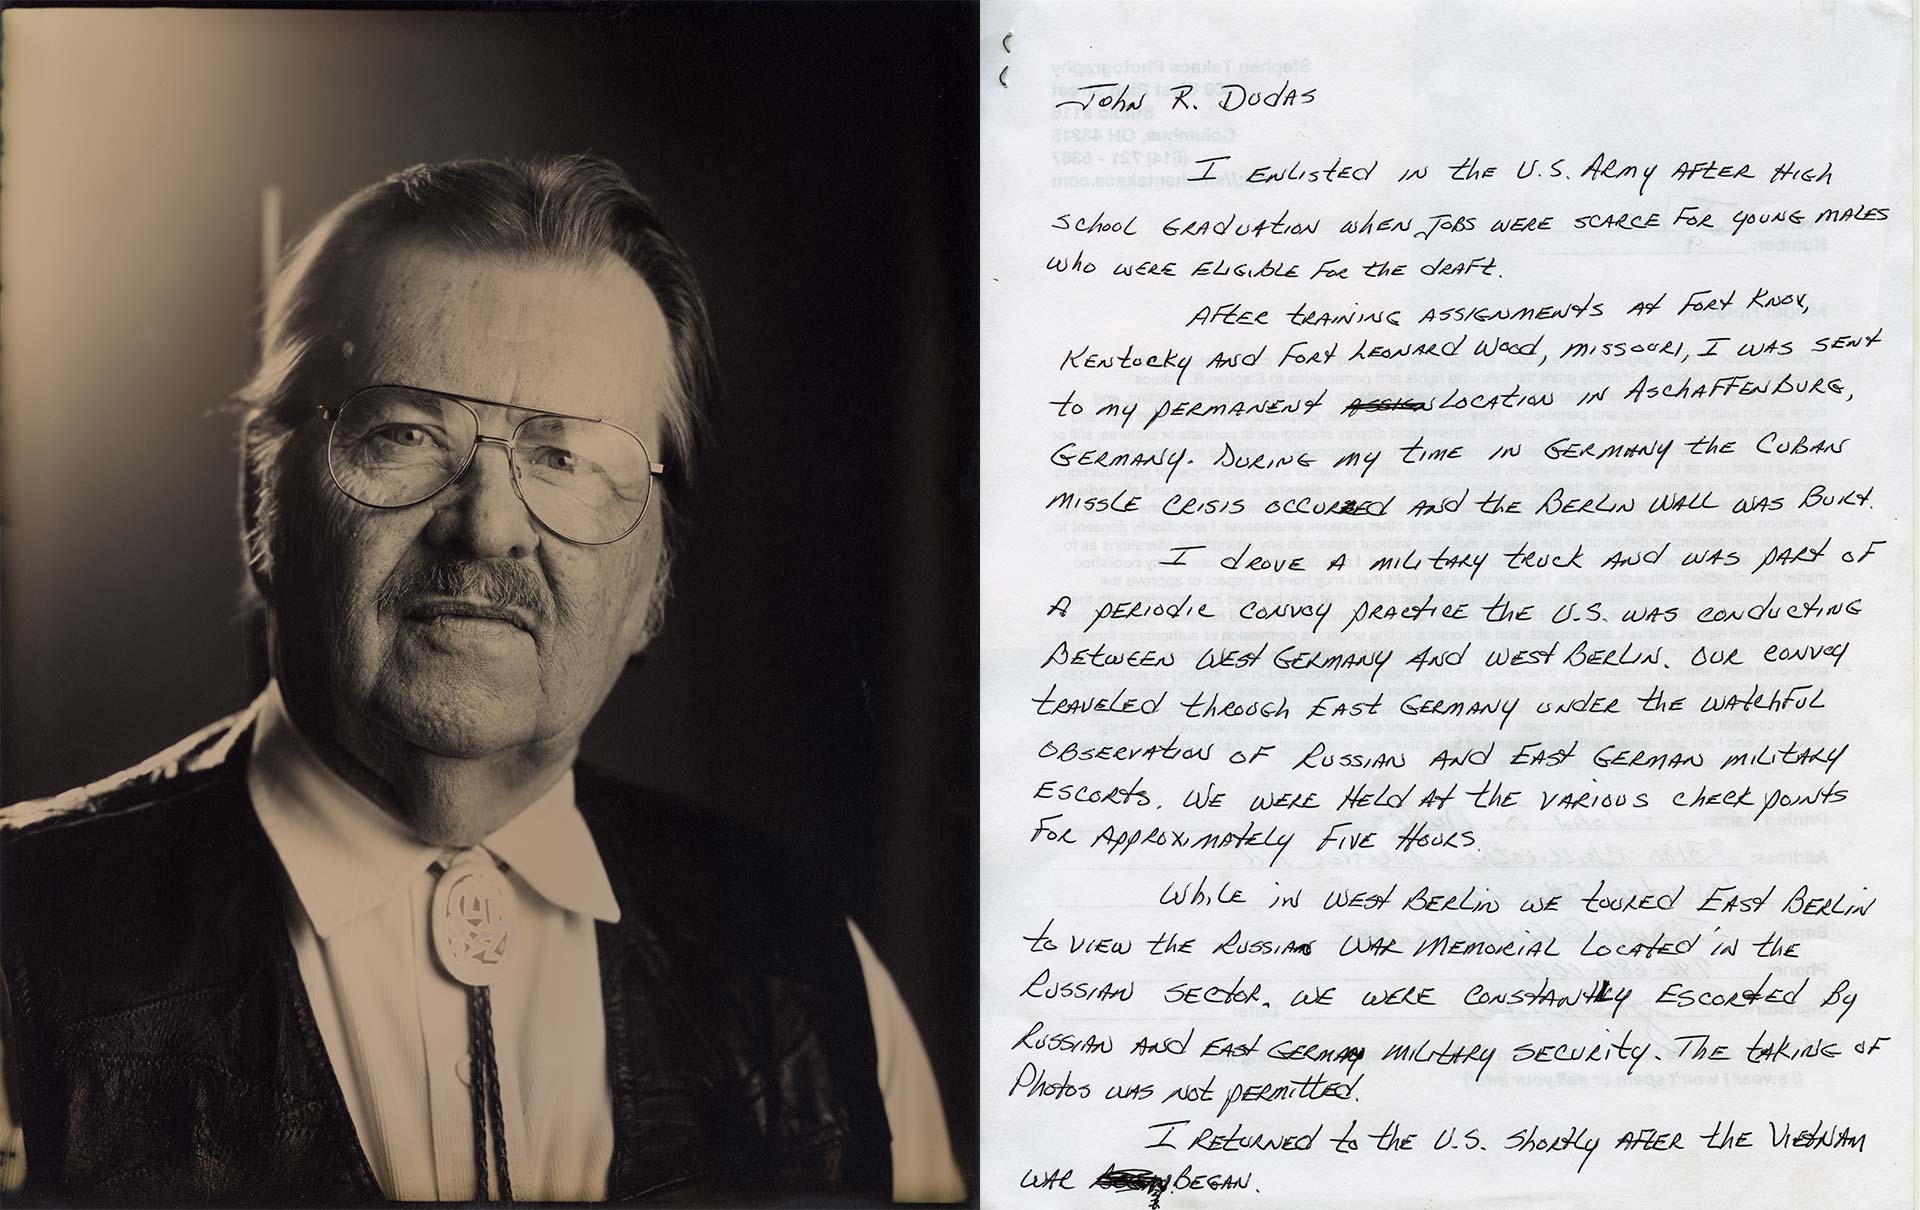 John R. Dudas
I enlisted in the U.S. Army after high
school graduation when jobs were scarce for young males
who were eligible for the draft.
After training assignments at Fort Knox,
Kentucky and Fort Leonard Wood, Missouri, I was sent
to my permanent location in Aschaffenburg,
Germany. During my time in Germany the Cuban
Missle Crisis occured and the Berlin Wall was built.
I drove a military truck and was part of
a periodic convoy practice the U.S. was conducting
between West Germany and West Berlin. Our convoy
traveled through East Germany under the watchful
observation of Russian and East German military
escorts. We were held at the various check points
for approximately five hours.
While in West Berlin we toured East Berlin
to view the Russian War Memorial located in the
Russian sector. We were constantly escorted by
Russian and East German military security. The taking of
photos was not permitted.
I returned to the U.S. shortly after the Vietnam
War began.